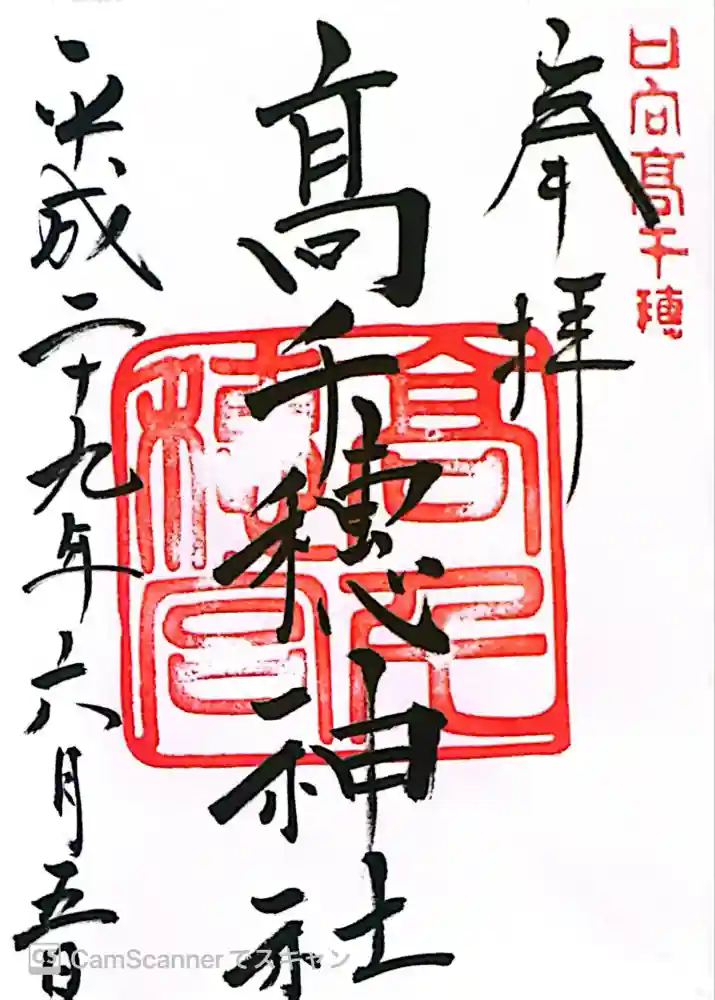 日向高千穂
奉拝
高千穂神社
平成二十九年六月五日
CamScannerでスキャン